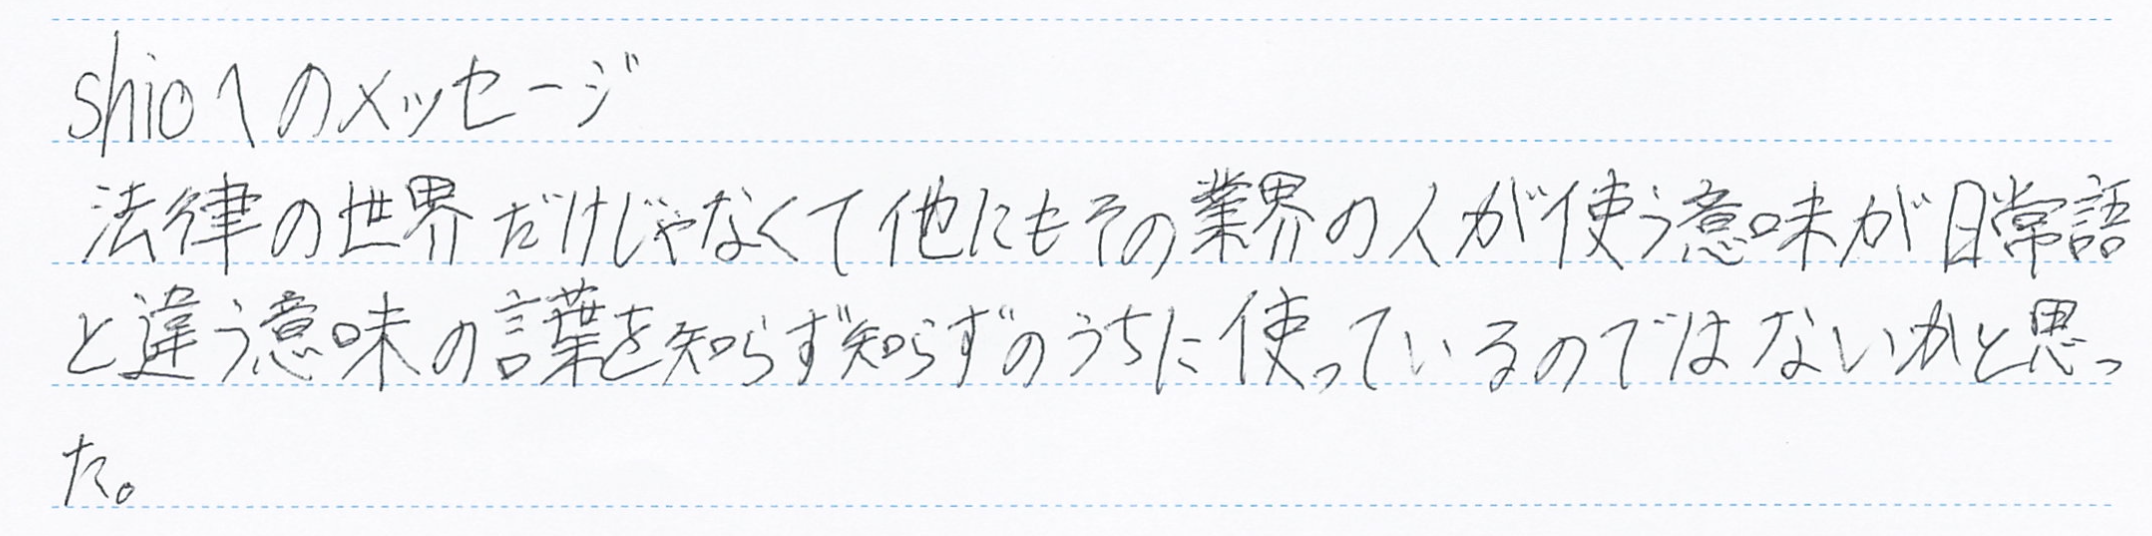 shioへのメッセージ
法律の世界だけじゃなくて他にもその業界の人が使う意味が日常語
と違う意味の言葉を知らず知らずのうちに使っているのではないかと思っ
た。